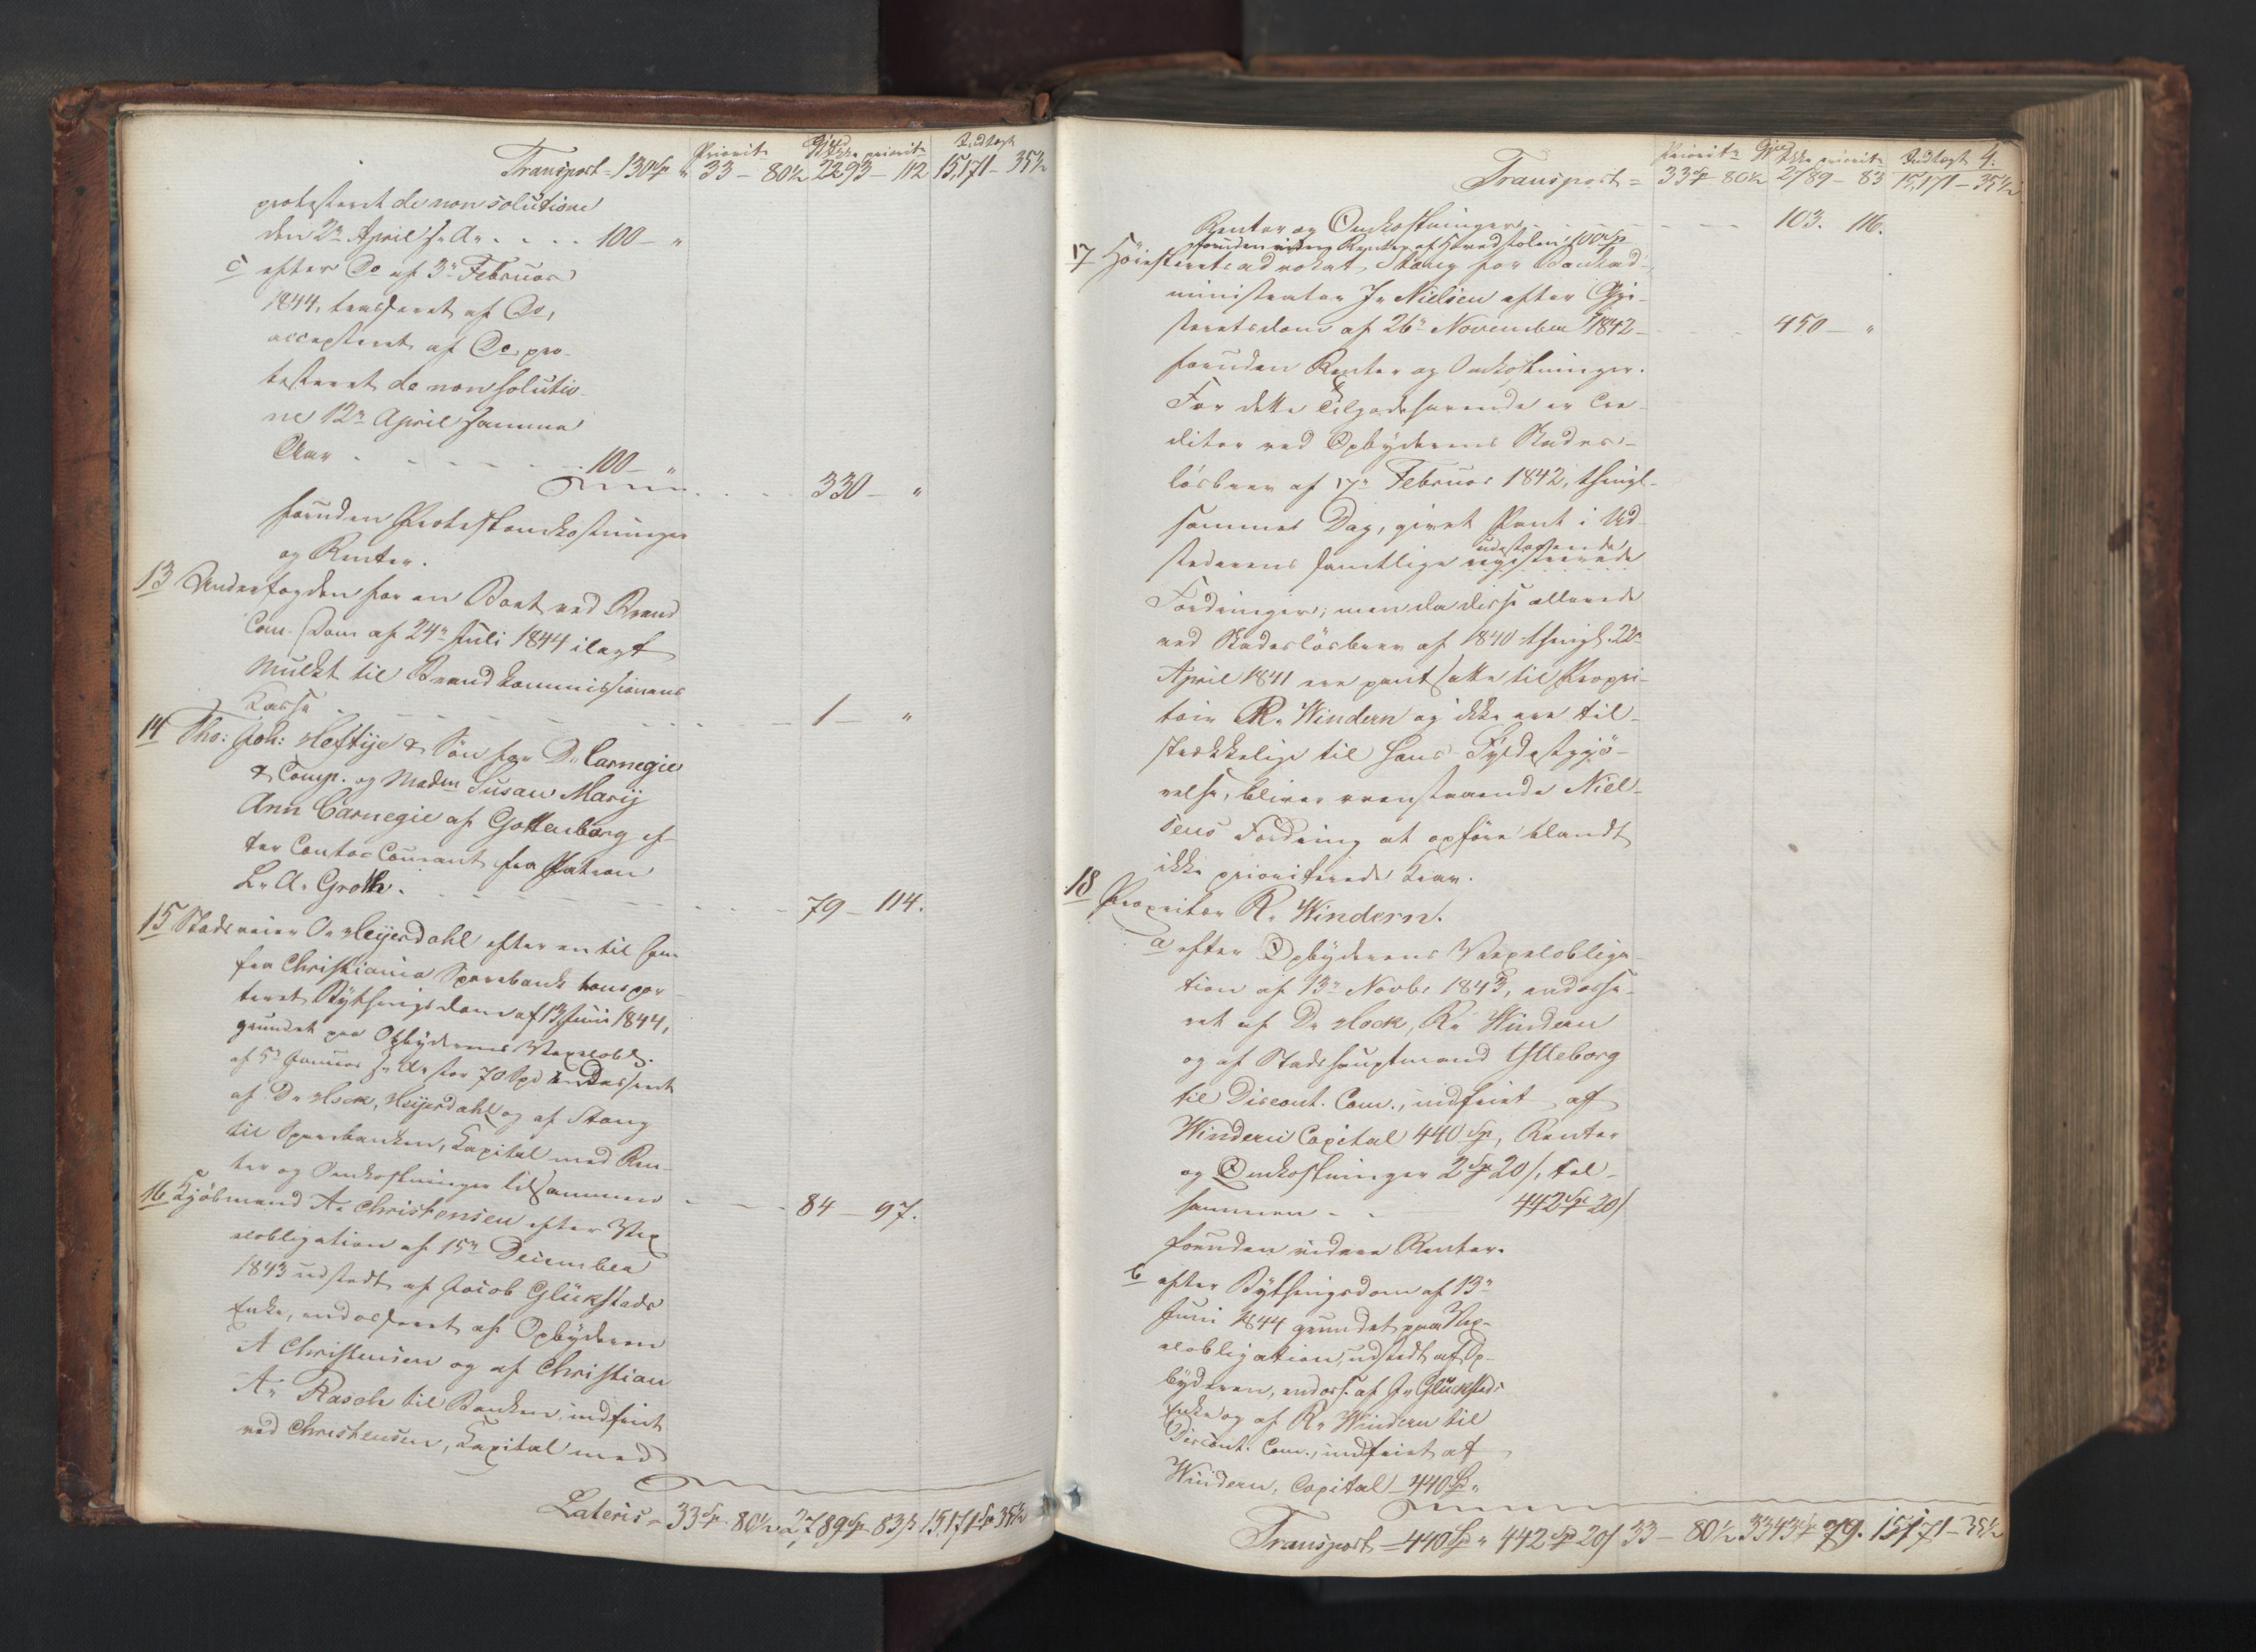 Priorit. Gjæld Ikke priorit. Indtægt
Transport = 130 Sp " 33 – 80½ 2293 – 112 15,171 – 35½
protesteret de non solutione
den 2n April s. A. . . . . 100 – "
c efter Do af 3n Februar
1844, trasseret af Do,
accepteret af Do, pro-
testeret de non solutio-
ne 12n April samme
Aar . . . . 100 – "
330 – "
foruden Protestomkostninger
og Renter.
13 Underfogden for en Bent ved Brand
Com. Dom af 24n Juli 1844 ilagt
Mulkt til Brandkommissionens
Kasse . . . . 1 – "
14 Tho: Joh: Heftije & Søn for D. Carnegie
& Comp. og Madm Susan Marij
Ann Carnegie af Gottenborg ef-
ter Conto Courant fra Patron
L. A. Groth. . . . 79 – 114.
15 Stadsveier O. Heijerdahl efter en til ham
fra Christiania Sparebank transpor-
teret Bythingsdom af 13 Juni 1844,
grundet paa Opbyderens Vexelobl.
af 5n Januar s. A. stor 70 Spd endosseret
af D. Hock, Heijerdahl og af Stang
til Sparebanken, Kapital med Ren-
ter og Omkostninger tilsammen . . . 84 – 97.
16 Kjöbmand A. Christensen efter Vex-
elobligation af 15n December
1843 udstedt af Jacob Glückstads
Enke, endosseret af Opbyderen
A Christensen og af Christian
A. Rasch til Banken, indfriet
ved Christensen, Kapital med
Lateris = 33 Sp. 80½ 2,789 Sp 83 ß 15,171 Sp 35½
4.
Priorit. Gjæld Ikke priorit. Indtægt
Transport = 33 Sp 80½ 2789 – 83 15,171 – 35½
Renter og Omkostninger . . . 103. 116.
foruden videre Renter af Hovedstolen 100 Sp
17 Höiesteretsadvokat Stang for Bankad-
ministrator J. Nielsen efter Gje-
steretsdom af 26n November 1842 – 450 – "
foruden Renter og Omkostninger.
For dette Tilgodehavende er Cre-
ditor ved Opbyderens Skades-
lösbrev af 17n Februar 1842, thingl.
sammes Dag, givet Pant i Ud-
udestaaende
stederens samtlige registrerede
Fordringer; men da disse allerede
ved Skadeslösbrev af 1840 thingl. 22n
April 1841 ere pantsatte til Propri-
tair R. Windern og ikke ere til-
strækkelige til hans Fyldestgjö-
relse, bliver ovenstaaende Niel-
sens Fordring at opföre blandt
ikke prioriterede Krav.
18 Propritær R. Windern.
a efter Opbyderens Vexelobliga-
tion af 13n Novbr 1843, endosse-
ret af D. Hock, R. Windern
og af Stadshauptmand Ytteborg
til Discont. Com., indfriet af
Windern Capital 440 Sp, Renter
og Omkostninger 2 Sp 20 ß, til-
sammen . . 442 Sp 20 ß
foruden videre Renter.
b efter Bythingsdom af 13n
Juni 1844 grundet paa Vex-
elobligation, udstedt af Op-
byderen, endoss. af J. Glückstads
Enke og af R. Windern til
Discont. Com., indfriet af
Windern, Capital 440 Sp "
Transport = 440 Sp " 442 Sp 20 ß 33 – 80½ 3343 Sp 79. 15,171 – 35½